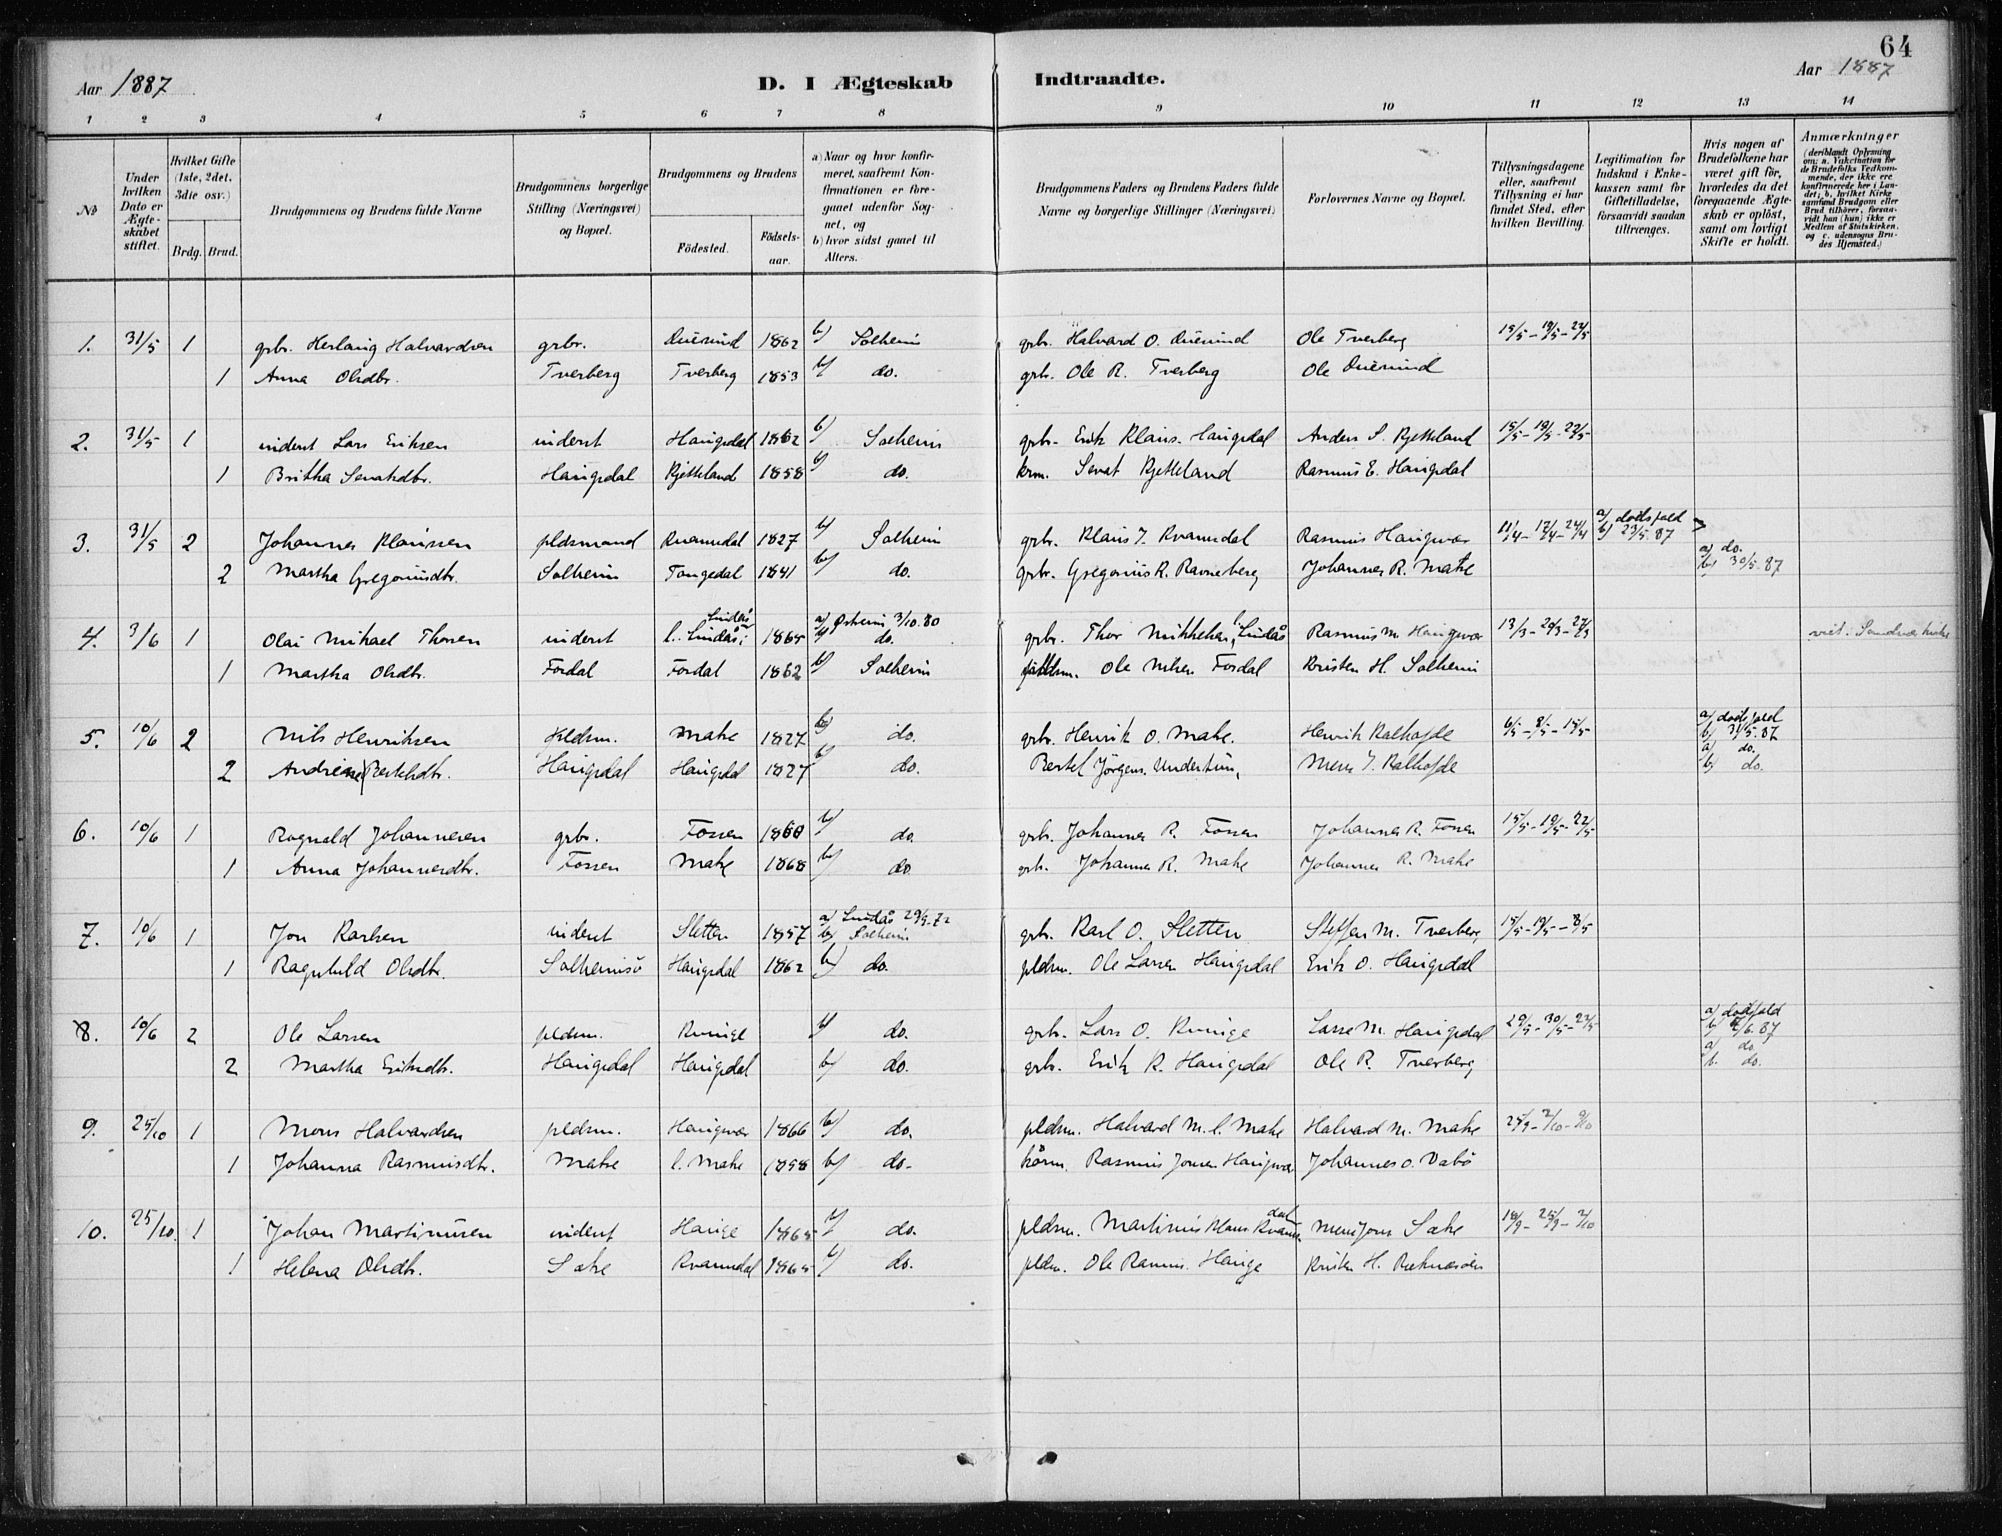 64
Aar 1887 D. I Ægteskab Indtraadte. Aar 1887
1 2 3 4 5 6 7 8 9 10 11 12 13 14
№
Under hvilken Dato er Ægteskabet stiftet.
Hvilket Gifte (1ste, 2det, 3die osv.)
Brdg. Brud.
Brudgommens og Brudens fulde Navne
Brudgommens borgerlige Stilling (Næringsvei) og Bopæl.
Brudgommens og Brudens
Fødested. Fødselsaar.
a) Naar og hvor konfirmeret, saafremt Konfirmationen er foregaaet udenfor Sognet, og
b) hvor sidst gaaet til Alters.
Brudgommens Faders og Brudens Faders fulde Navne og borgerlige Stillinger (Næringsvei)
Forlovernes Navne og Bopæl.
Tillysningsdagene eller, saafremt Tillysning ei har fundet Sted, efter hvilken Bevilling.
Legitimation for Indskud i Enkekassen samt for Giftetilladelse, forsaavidt saadan tiltrænges.
Hvis nogen af Brudefolkene har været gift før, hvorledes da det foregaaende Ægteskab er opløst, samt om lovligt Skifte er holdt.
Anmærkninger (deriblandt Oplysning om: a. Vakcination for de Brudefolks Vedkommende, der ikke ere konfirmerede her i Landet; b. hvilket Kirkesamfund Brudgom eller Brud tilhører, forsaavidt han (hun) ikke er Medlem af Statskirken, og c. udensogns Brudes Hjemsted.)
1. 31/5 1 gbr. Herlaug Halvardsen gbr. Duesund 1862 b) Solheim gbr. Halvard O. Duesund Ole Tverberg 15/5 - 19/5 - 22/5
1 Anna Olsdtr. Tverberg Tverberg 1853 b) do. gbr. Ole R. Tverberg Ole Duesund
2. 31/5 1 inderst Lars Eriksen inderst Haugsdal 1862 b) Solheim gbr. Erik Klaus. Haugsdal Anders S. Kjetteland 15/5 - 19/5 - 22/5
1 Britha Sevatsdtr. Haugsdal Kjetteland 1858 b) do. Sevat Kjetteland Rasmus E. Haugsdal
3. 31/5 2 Johannes Klaussen pldsmand Kvamsdal 1827 b) Solheim gbr. Klaus J. Kvamsdal Rasmus Haugsvær 11/4 - 17/4 - 24/4 a) dødsfald b) 23/5. 87
2 Martha Gregoriusdtr. Solheim Tangedal 1841 b) do. gbr. Gregorius R. Ravneberg Johannes R. Matre a) do. b) 30/5. 87
4. 3/6 1 Olai Mikael Thorsen inderst Lindås 1865 a) 3/10. 80 b) do. gbr. Thor Mikkelsen, Lindås Rasmus M. Haugsvær 13/3 - 20/3 - 27/3
1 Martha Olsdtr. Fordal Fordal 1862 b) Solheim Ole Nilsen Fordal Kristen H. Solheim
5. 10/6 2 Nils Henriksen pldsm. Matre 1827 b) do. gbr. Henrik O. Matre. Henrik Kalhofde 6/5 - 8/5 - 15/5 a) dødsfald b) 31/5. 87
2 Andrine Bertelsdtr. Haugsdal Haugsdal 1827 b) do. Bertel Jørgens. Undertun, Mons J. Kalhofde a) do. b) do.
6. 10/6 1 Ragnald Johannesen gbr. Fossen 1860 b) do. gbr. Johannes R. Fossen Johannes R. Fossen 15/5 - 19/5 - 22/5
1 Anna Johannesdtr. Fossen Matre 1868 b) do gbr. Johannes R. Matre Johannes R. Matre
7. 10/6 1 Jon Karlsen inderst Sletten 1857 a) Lindås 29/9. 72 b) Solheim gbr. Karl O. Sletten Steffen M. Tverberg 15/5 - 19/5 - 8/5
1 Ragnhild Olsdtr. Solheimsø Haugsdal 1862 b) do. pldsm. Ole Larsen Haugsdal Erik O. Haugsdal
8. 10/6 2 Ole Larsen pldsm. Kvinge b) do. gbr. Lars O. Kvinge Lasse M. Haugsdal 29/5 - 30/5 - 23/5 a) dødsfald b) /6. 87
2 Martha Eriksdtr. Haugsdal Haugsdal b) do. gbr. Erik R. Haugsdal Ole R. Tverberg a) do. b. do.
9. 25/10 1 Mons Halvardsen pldsm. Haugsvær 1866 b) do. pldsm. Halvard M. l. Matre Halvard M. Matre 25/9 - 2/10 - 9/10
1 Johanna Rasmusdtr. Matre l. Matre 1858 b) do. Rasmus Jonsen Haugsvær Johannes O. Vabø
10. 25/10. 1 Johan Martinusen inderst Hauge 1865 b) do. pldsm. Martinus Klaus. Kvamsdal Mons Jons. Sætre 18/9 - 25/9 - 2/10
1 Helena Olsdtr. Sætre Kvamsdal 1865 b) do. pldsm. Ole Rasmus. Hauge Kristen H.